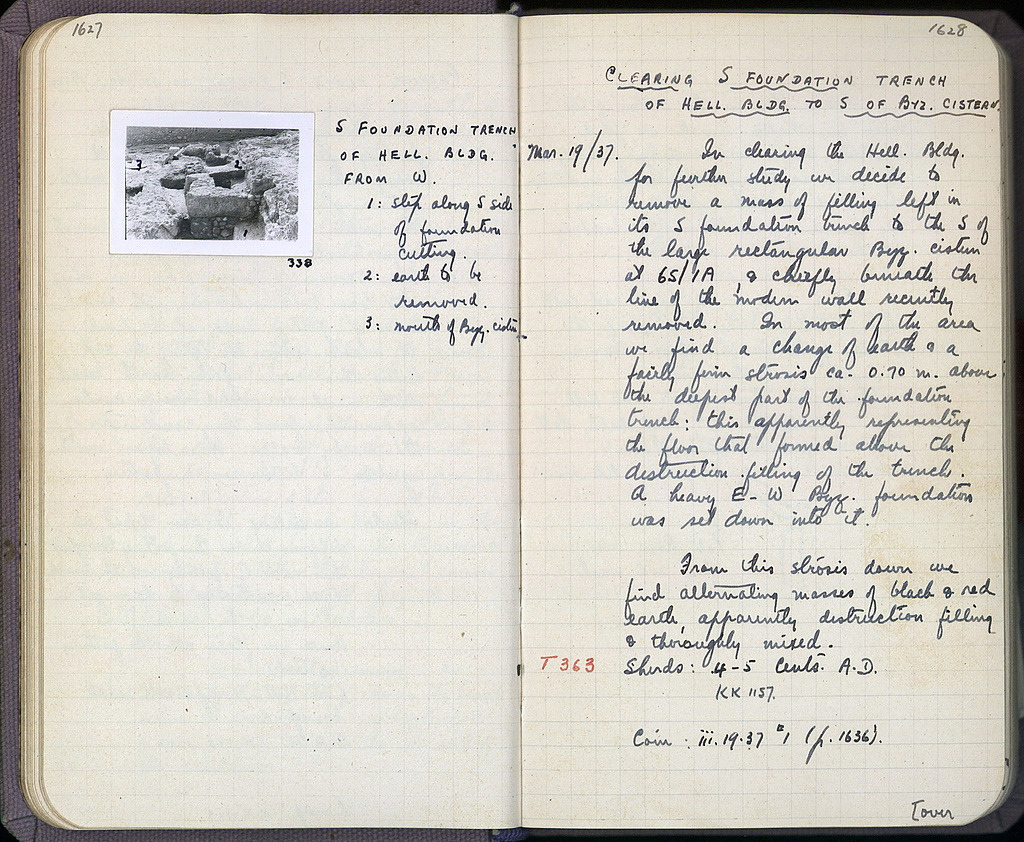 1627
3
2
1
338
S FOUNDATION TRENCH
OF HELL. BLDG.
FROM W.
1: slip along S side
of foundation
cutting.
2: earth to be
removed.
3: mouth of Byz. cistern
1628
CLEARING S FOUNDATION TRENCH
OF HELL. BLDG. TO S OF BYZ. CISTERN.
Mar. 19/37.
In clearing the Hell. Bldg.
for further study we decide to
remove a mass of filling left in
its S foundation trench to the S of
the large rectangular Byz. cistern
at 65/ΙΑ, & chiefly beneath the
line of the modern wall recently
removed. In most of the area
we find a change of earth & a
fairly firm strosis ca. 0.70 m. above
the deepest part of the foundation
trench: this apparently representing
the floor that formed above the
destruction filling of the trench.
A heavy E-W Byz. foundation
was set down into it.
From this strosis down we
find alternating masses of black & red
earth, apparently destruction filling
& thoroughly mixed.
T 363
Sherds: 4-5 Cents. A.D.
KK 1157.
Coin: iii.19.37 #1 (p. 1636).
[over